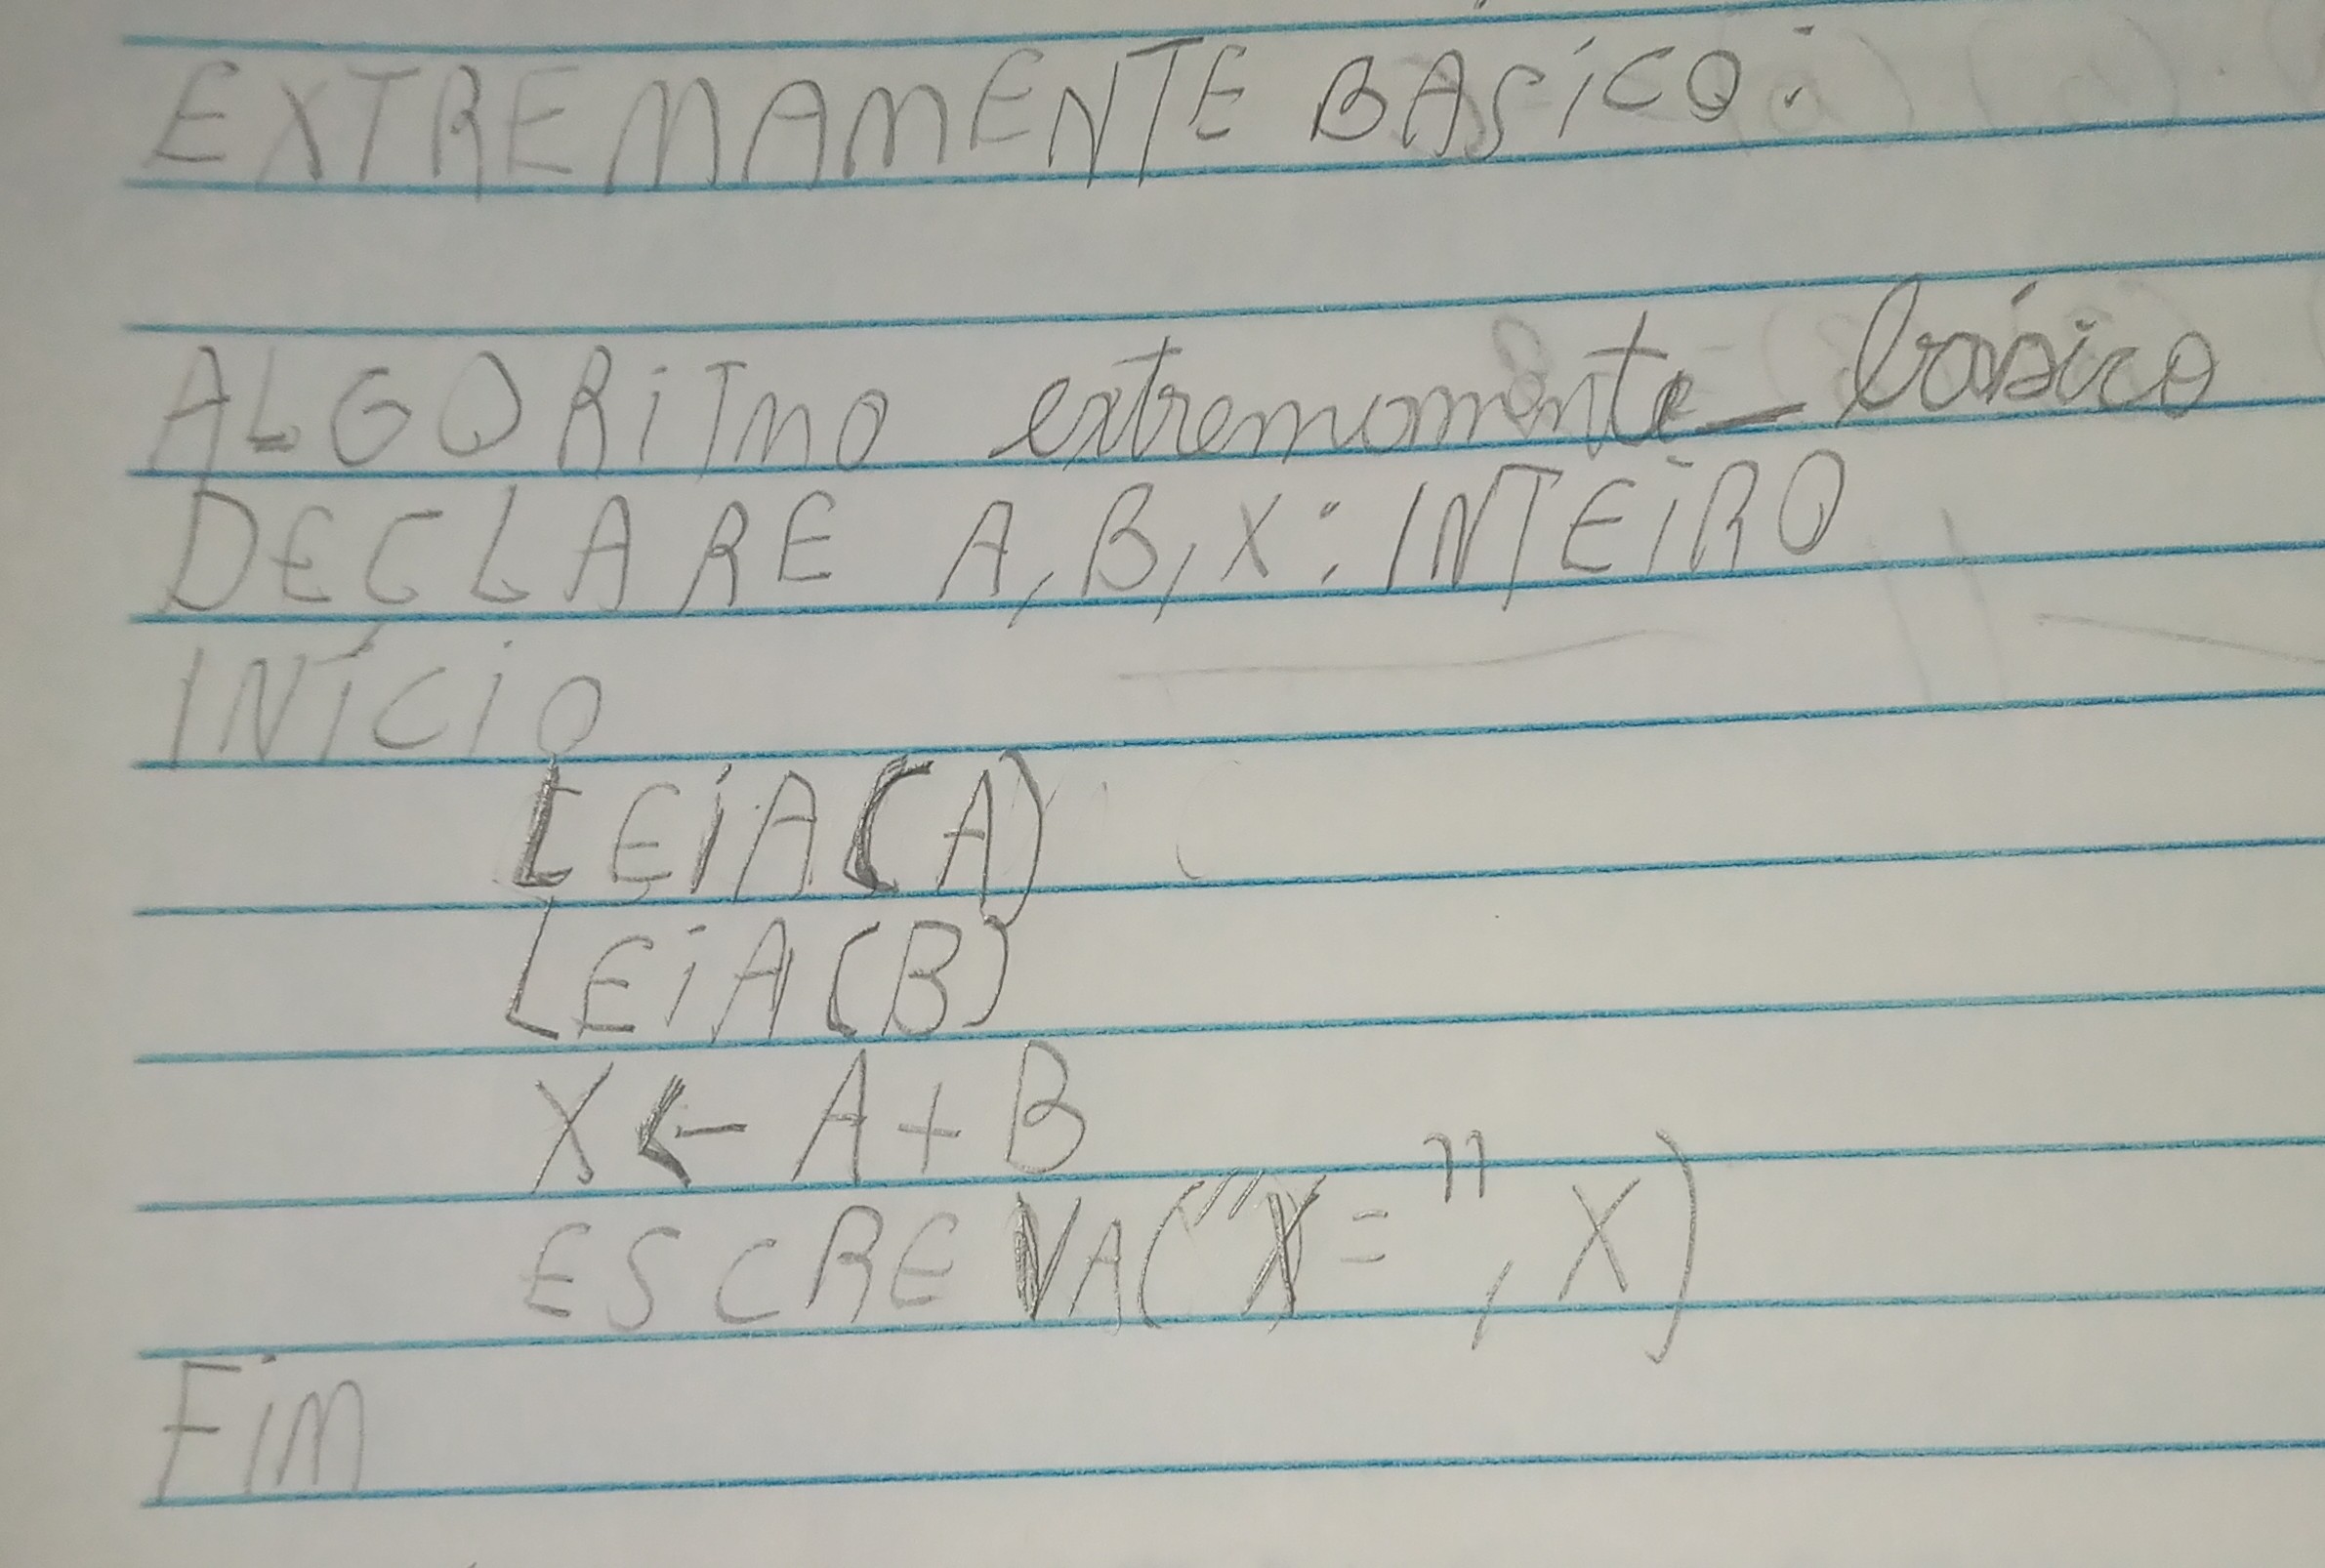 EXTREMAMENTE BASICO:
ALGORITMO extremamente_básico
DECLARE A, B, X : INTEIRO
INÍCIO
LEIA(A)
LEIA(B)
X ← A + B
ESCREVA("X = ", X)
FIM